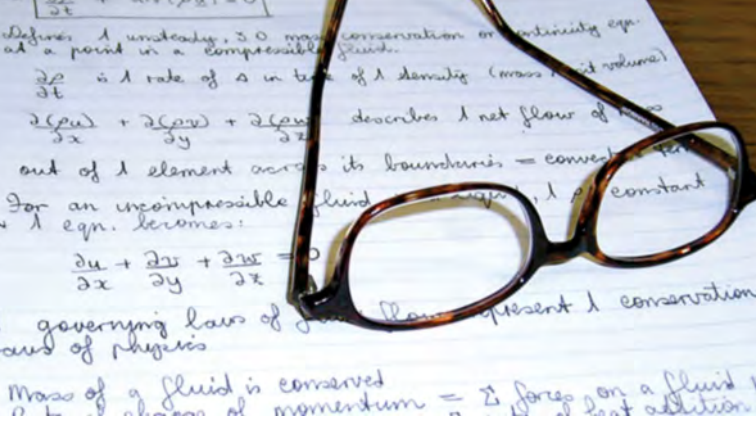 ∂t + div(ρu) = 0
Defines 1 unsteady, 3D mass conservation or continuity eqn.
at a point in a compressible fluid.
∂ρ/∂t is 1 rate of Δ in time of 1 density (mass unit volume)
∂(ρu)/∂x + ∂(ρv)/∂y + ∂(ρw)/∂z describes 1 net flow of mass
out of 1 element across its boundaries = convect
For an incompressible fluid 1 ρ constant
1 eqn. becomes:
∂u/∂x + ∂v/∂y + ∂w/∂z = 0
governing laws of flow represent 1 conservation
laws of physics
Mass of a fluid is conserved
of momentum = Σ forces on a fluid
of heat addition